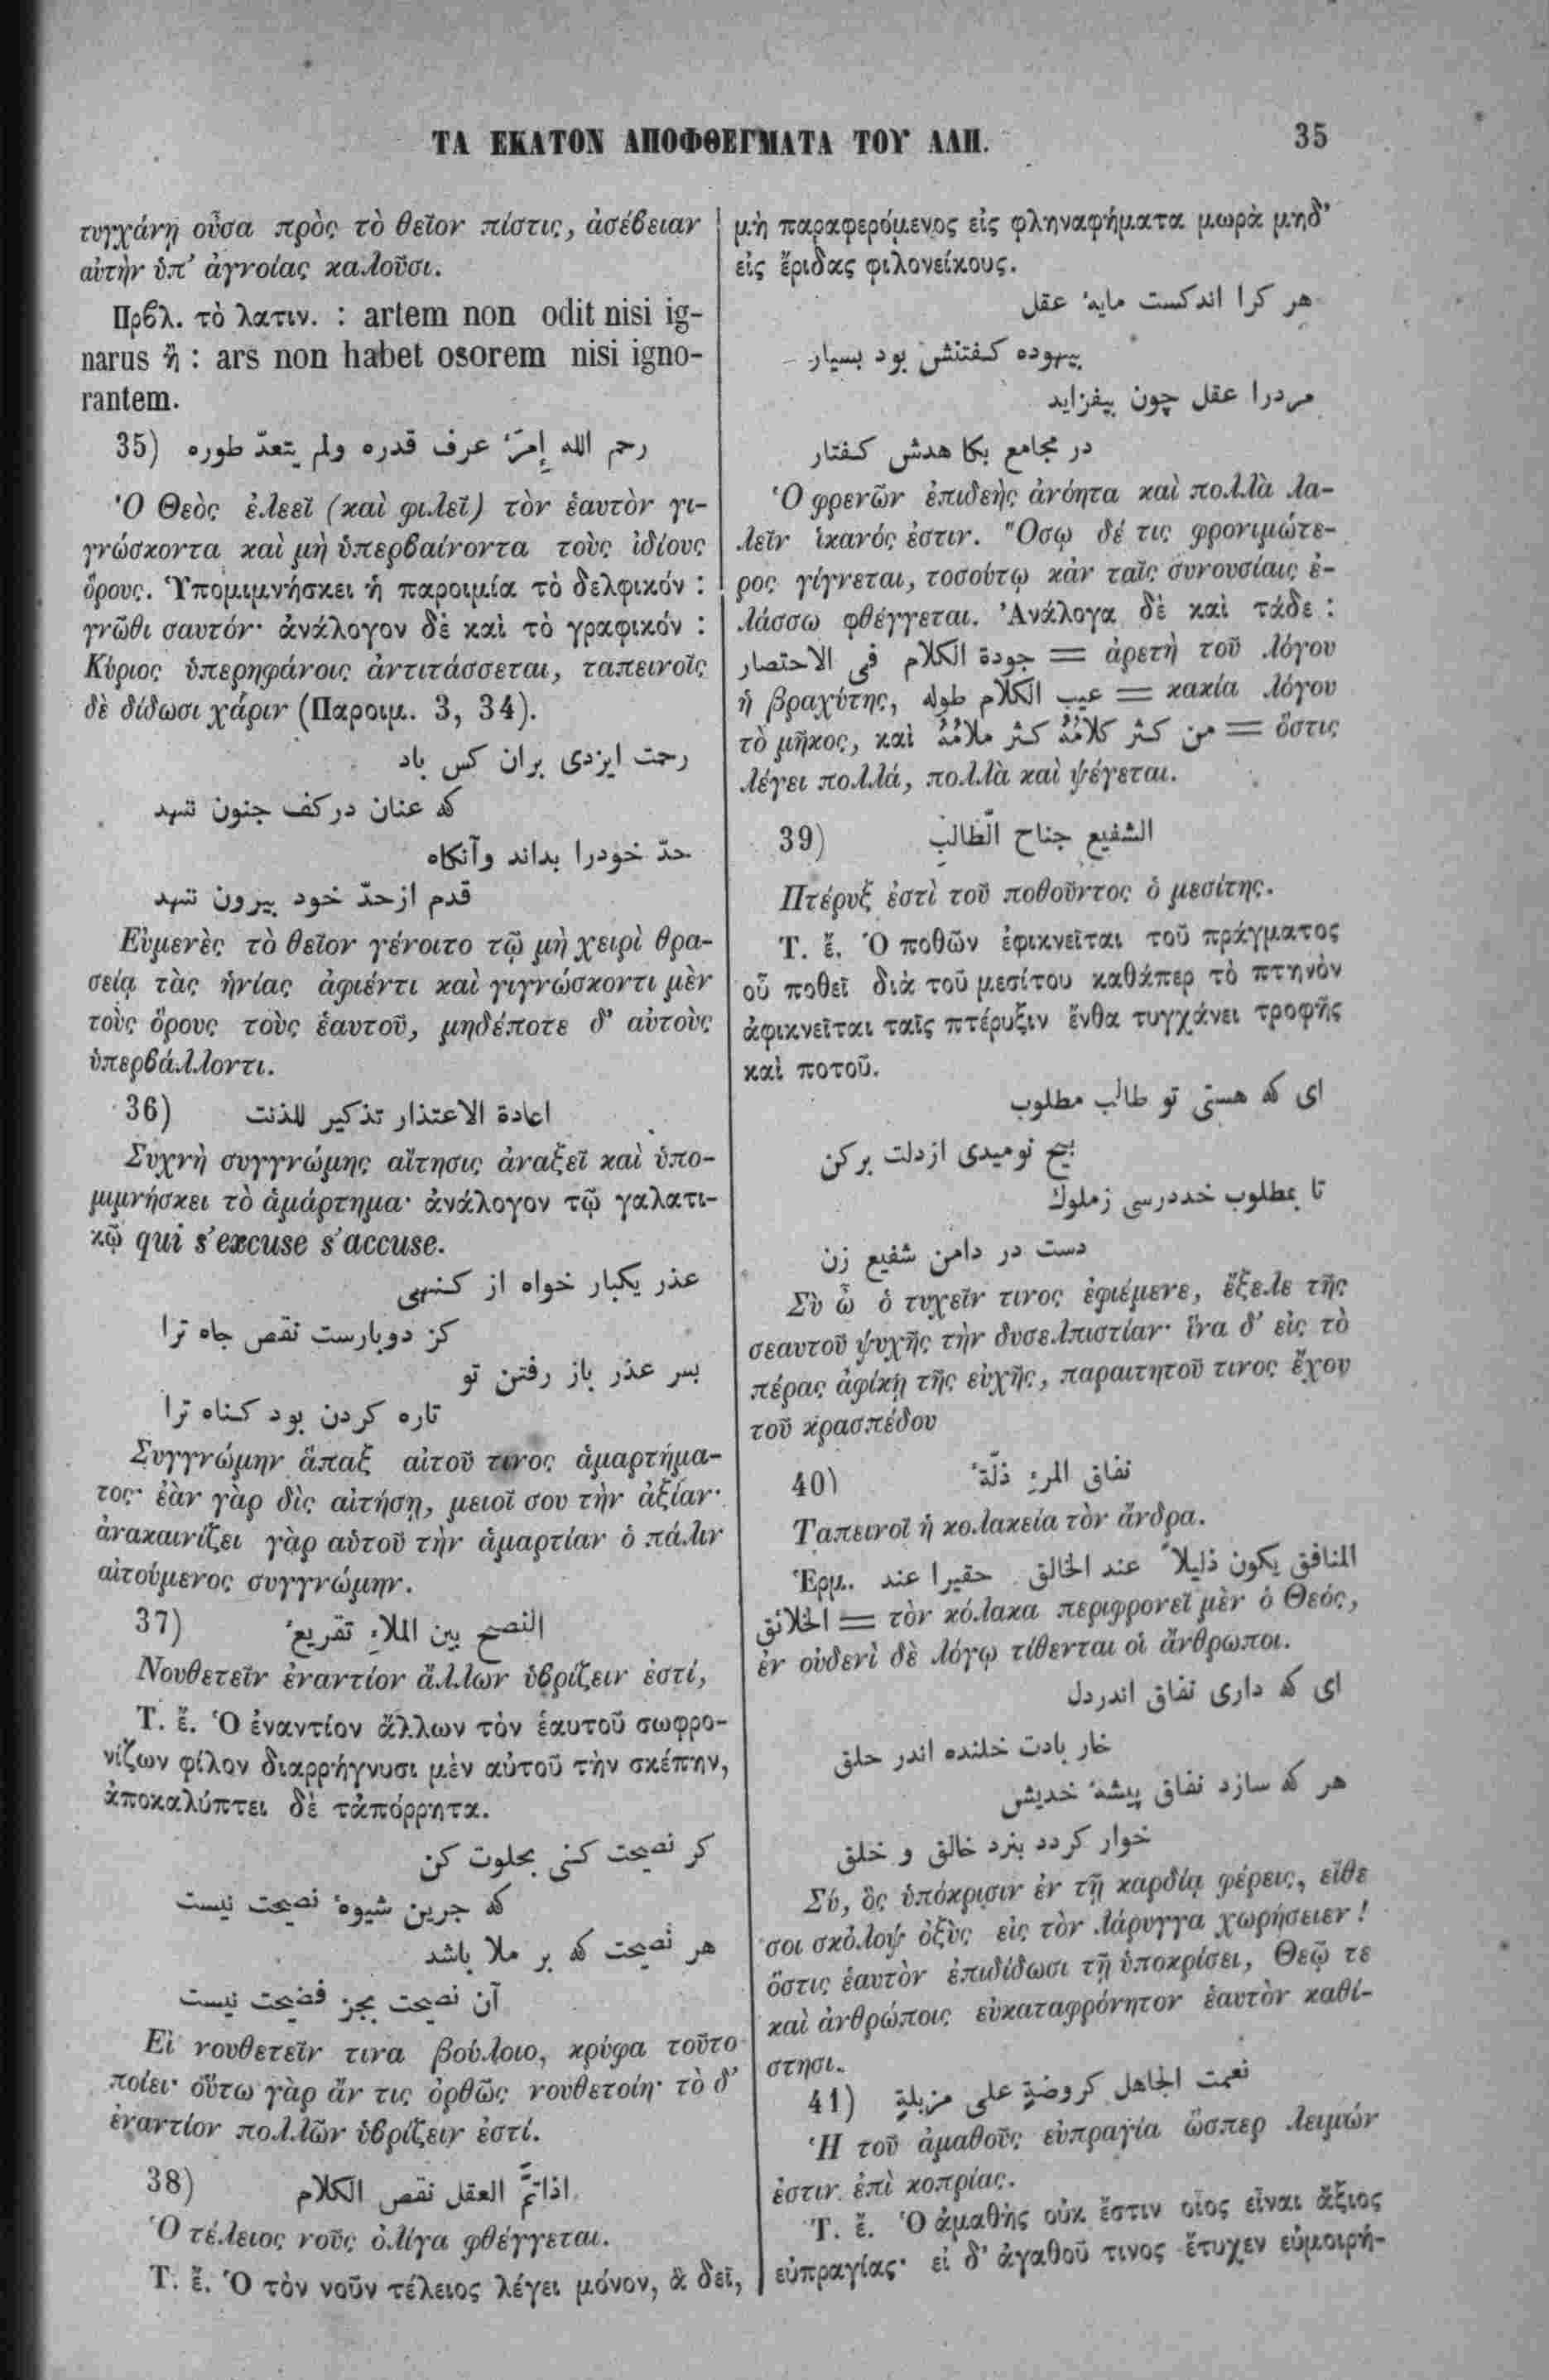 ΤΑ ΕΚΑΤΟΝ ΑΠΟΦΘΕΓΜΑΤΑ ΤΟΥ ΑΛΗ.
35
τυγχάνῃ οὖσα πρὸς τὸ θεῖον πίστις, ἀσέβειαν
αὐτὴν ὑπ' ἀγνοίας καλοῦσι.
Πρβλ. τὸ λατιν. : artem non odit nisi ig-
narus ἢ : ars non habet osorem nisi igno-
rantem.
35) رحم الله إِمرَءً عرف قدره ولم يتعدّ طوره
Ὁ Θεὸς ἐλεεῖ (καὶ φιλεῖ) τὸν ἑαυτὸν γι-
γνώσκοντα καὶ μὴ ὑπερβαίνοντα τοὺς ἰδίους
ὅρους. Ὑπομιμνήσκει ἡ παροιμία τὸ δελφικόν :
γνῶθι σαυτόν· ἀνάλογον δὲ καὶ τὸ γραφικόν :
Κύριος ὑπερηφάνοις ἀντιτάσσεται, ταπεινοῖς
δὲ δίδωσι χάριν (Παροιμ. 3, 34).
رحمت ايزدى بران كس باد
كه عنان در كف جنون ننهد
حدّ خودرا بداند وآنكاه
قدم از حدّ خود بيرون ننهد
Εὐμενὲς τὸ θεῖον γένοιτο τῷ μὴ χειρὶ θρα-
σείᾳ τὰς ἡνίας ἀφιέντι καὶ γιγνώσκοντι μὲν
τοὺς ὅρους τοὺς ἑαυτοῦ, μηδέποτε δ' αὐτοὺς
ὑπερβάλλοντι.
36) اعادة الاعتذار تذكير للذنت
Συχνὴ συγγνώμης αἴτησις ἀναξεῖ καὶ ὑπο-
μιμνήσκει τὸ ἁμάρτημα· ἀνάλογον τῷ γαλατι-
κῷ qui s'excuse s'accuse.
عذر يكبار خواه از كنهى
كز دوبارست نقص جاه ترا
بسر عذر باز رفتن تو
تاره كردن بود كناه ترا
Συγγνώμην ἅπαξ αἰτοῦ τινος ἁμαρτήμα-
τος· ἐὰν γὰρ δὶς αἰτήσῃ, μειοῖ σου τὴν ἀξίαν·
ἀνακαινίζει γὰρ αὑτοῦ τὴν ἁμαρτίαν ὁ πάλιν
αἰτούμενος συγγνώμην.
37) النصح بين الملاءِ تقريعٌ
Νουθετεῖν ἐναντίον ἄλλων ὑβρίζειν ἐστί,
Τ. ἔ. Ὁ ἐναντίον ἄλλων τὸν ἑαυτοῦ σωφρο-
νίζων φίλον διαρρήγνυσι μὲν αὐτοῦ τὴν σκέπην,
ἀποκαλύπτει δὲ τἀπόρρητα.
كر نصيحت كنى بخلوت كن
كه جزين شيوهٔ نصيحت نيست
هر نصيحت كه بر ملا باشد
آن نصيحت بجز فضيحت نيست
Εἰ νουθετεῖν τινα βούλοιο, κρύφα τοῦτο
ποίει· οὕτω γὰρ ἄν τις ὀρθῶς νουθετοίη· τὸ δ'
ἐναντίον πολλῶν ὑβρίζειν ἐστί.
38) اذاتمَّ العقل نقص الكلام
Ὁ τέλειος νοῦς ὀλίγα φθέγγεται.
Τ. ἔ. Ὁ τὸν νοῦν τέλειος λέγει μόνον, ἃ δεῖ,
μὴ παραφερόμενος εἰς φληναφήματα μωρὰ μηδ'
εἰς ἔριδας φιλονείκους.
هر كرا اندكست مايهٔ عقل
بيهوده كفتنش بود بسيار
مردرا عقل چون بيفزايد
در مجامع بكاهدش كفتار
Ὁ φρενῶν ἐπιδεὴς ἀνόητα καὶ πολλὰ λα-
λεῖν ἱκανός ἐστιν. Ὅσῳ δέ τις φρονιμώτε-
ρος γίγνεται, τοσούτῳ κἀν ταῖς συνουσίαις ἐ-
λάσσω φθέγγεται. Ἀνάλογα δὲ καὶ τάδε :
جودة الكلام فى الاختصار = ἀρετὴ τοῦ λόγου
ἡ βραχύτης, عيب الكلام طوله = κακία λόγου
τὸ μῆκος, καὶ من كثر كلامُهُ كثر ملامُهُ = ὅστις
λέγει πολλά, πολλὰ καὶ ψέγεται.
39) الشفيع جناح الّطالبِ
Πτέρυξ ἐστὶ τοῦ ποθοῦντος ὁ μεσίτης.
Τ. ἔ. Ὁ ποθῶν ἐφικνεῖται τοῦ πράγματος
οὗ ποθεῖ διὰ τοῦ μεσίτου καθάπερ τὸ πτηνὸν
ἀφικνεῖται ταῖς πτέρυξιν ἔνθα τυγχάνει τροφῆς
καὶ ποτοῦ.
اى كه هستى تو طالب مطلوب
بيخ نوميدى ازدلت بركن
تا بمطلوب خددرسى زملوك
دست در دامن شفيع زن
Σὺ ὦ ὁ τυχεῖν τινος ἐφιέμενε, ἔξελε τῆς
σεαυτοῦ ψυχῆς τὴν δυσελπιστίαν· ἵνα δ' εἰς τὸ
πέρας ἀφίκῃ τῆς εὐχῆς, παραιτητοῦ τινος ἔχου
τοῦ κρασπέδου
40) نفاق المرءِ ذلّةٌ
Ταπεινοῖ ἡ κολακεία τὸν ἄνδρα.
Ἑρμ. المنافق يكون ذليلاً عند الخالق حقيرا عند
الخلائق = τὸν κόλακα περιφρονεῖ μὲν ὁ Θεός,
ἐν οὐδενὶ δὲ λόγῳ τίθενται οἱ ἄνθρωποι.
اى كه دارى نفاق اندردل
خار بادت خلنده اندر حلق
هر كه سازد نفاق پيشهٔ خديش
خوار كردد بنزد خالق و خلق
Σύ, ὃς ὑπόκρισιν ἐν τῇ καρδίᾳ φέρεις, εἴθε
σοι σκόλοψ ὀξὺς εἰς τὸν λάρυγγα χωρήσειεν!
ὅστις ἑαυτὸν ἐπιδίδωσι τῇ ὑποκρίσει, Θεῷ τε
καὶ ἀνθρώποις εὐκαταφρόνητον ἑαυτὸν καθί-
στησι.
41) نعمت الجاهل كروضةٍ على مزبلةٍ
Ἡ τοῦ ἀμαθοῦς εὐπραγία ὥσπερ λειμών
ἐστιν ἐπὶ κοπρίας.
Τ. ἔ. Ὁ ἀμαθὴς οὐκ ἔστιν οἷος εἶναι ἄξιος
εὐπραγίας· εἰ δ' ἀγαθοῦ τινος ἔτυχεν εὐμοιρή-